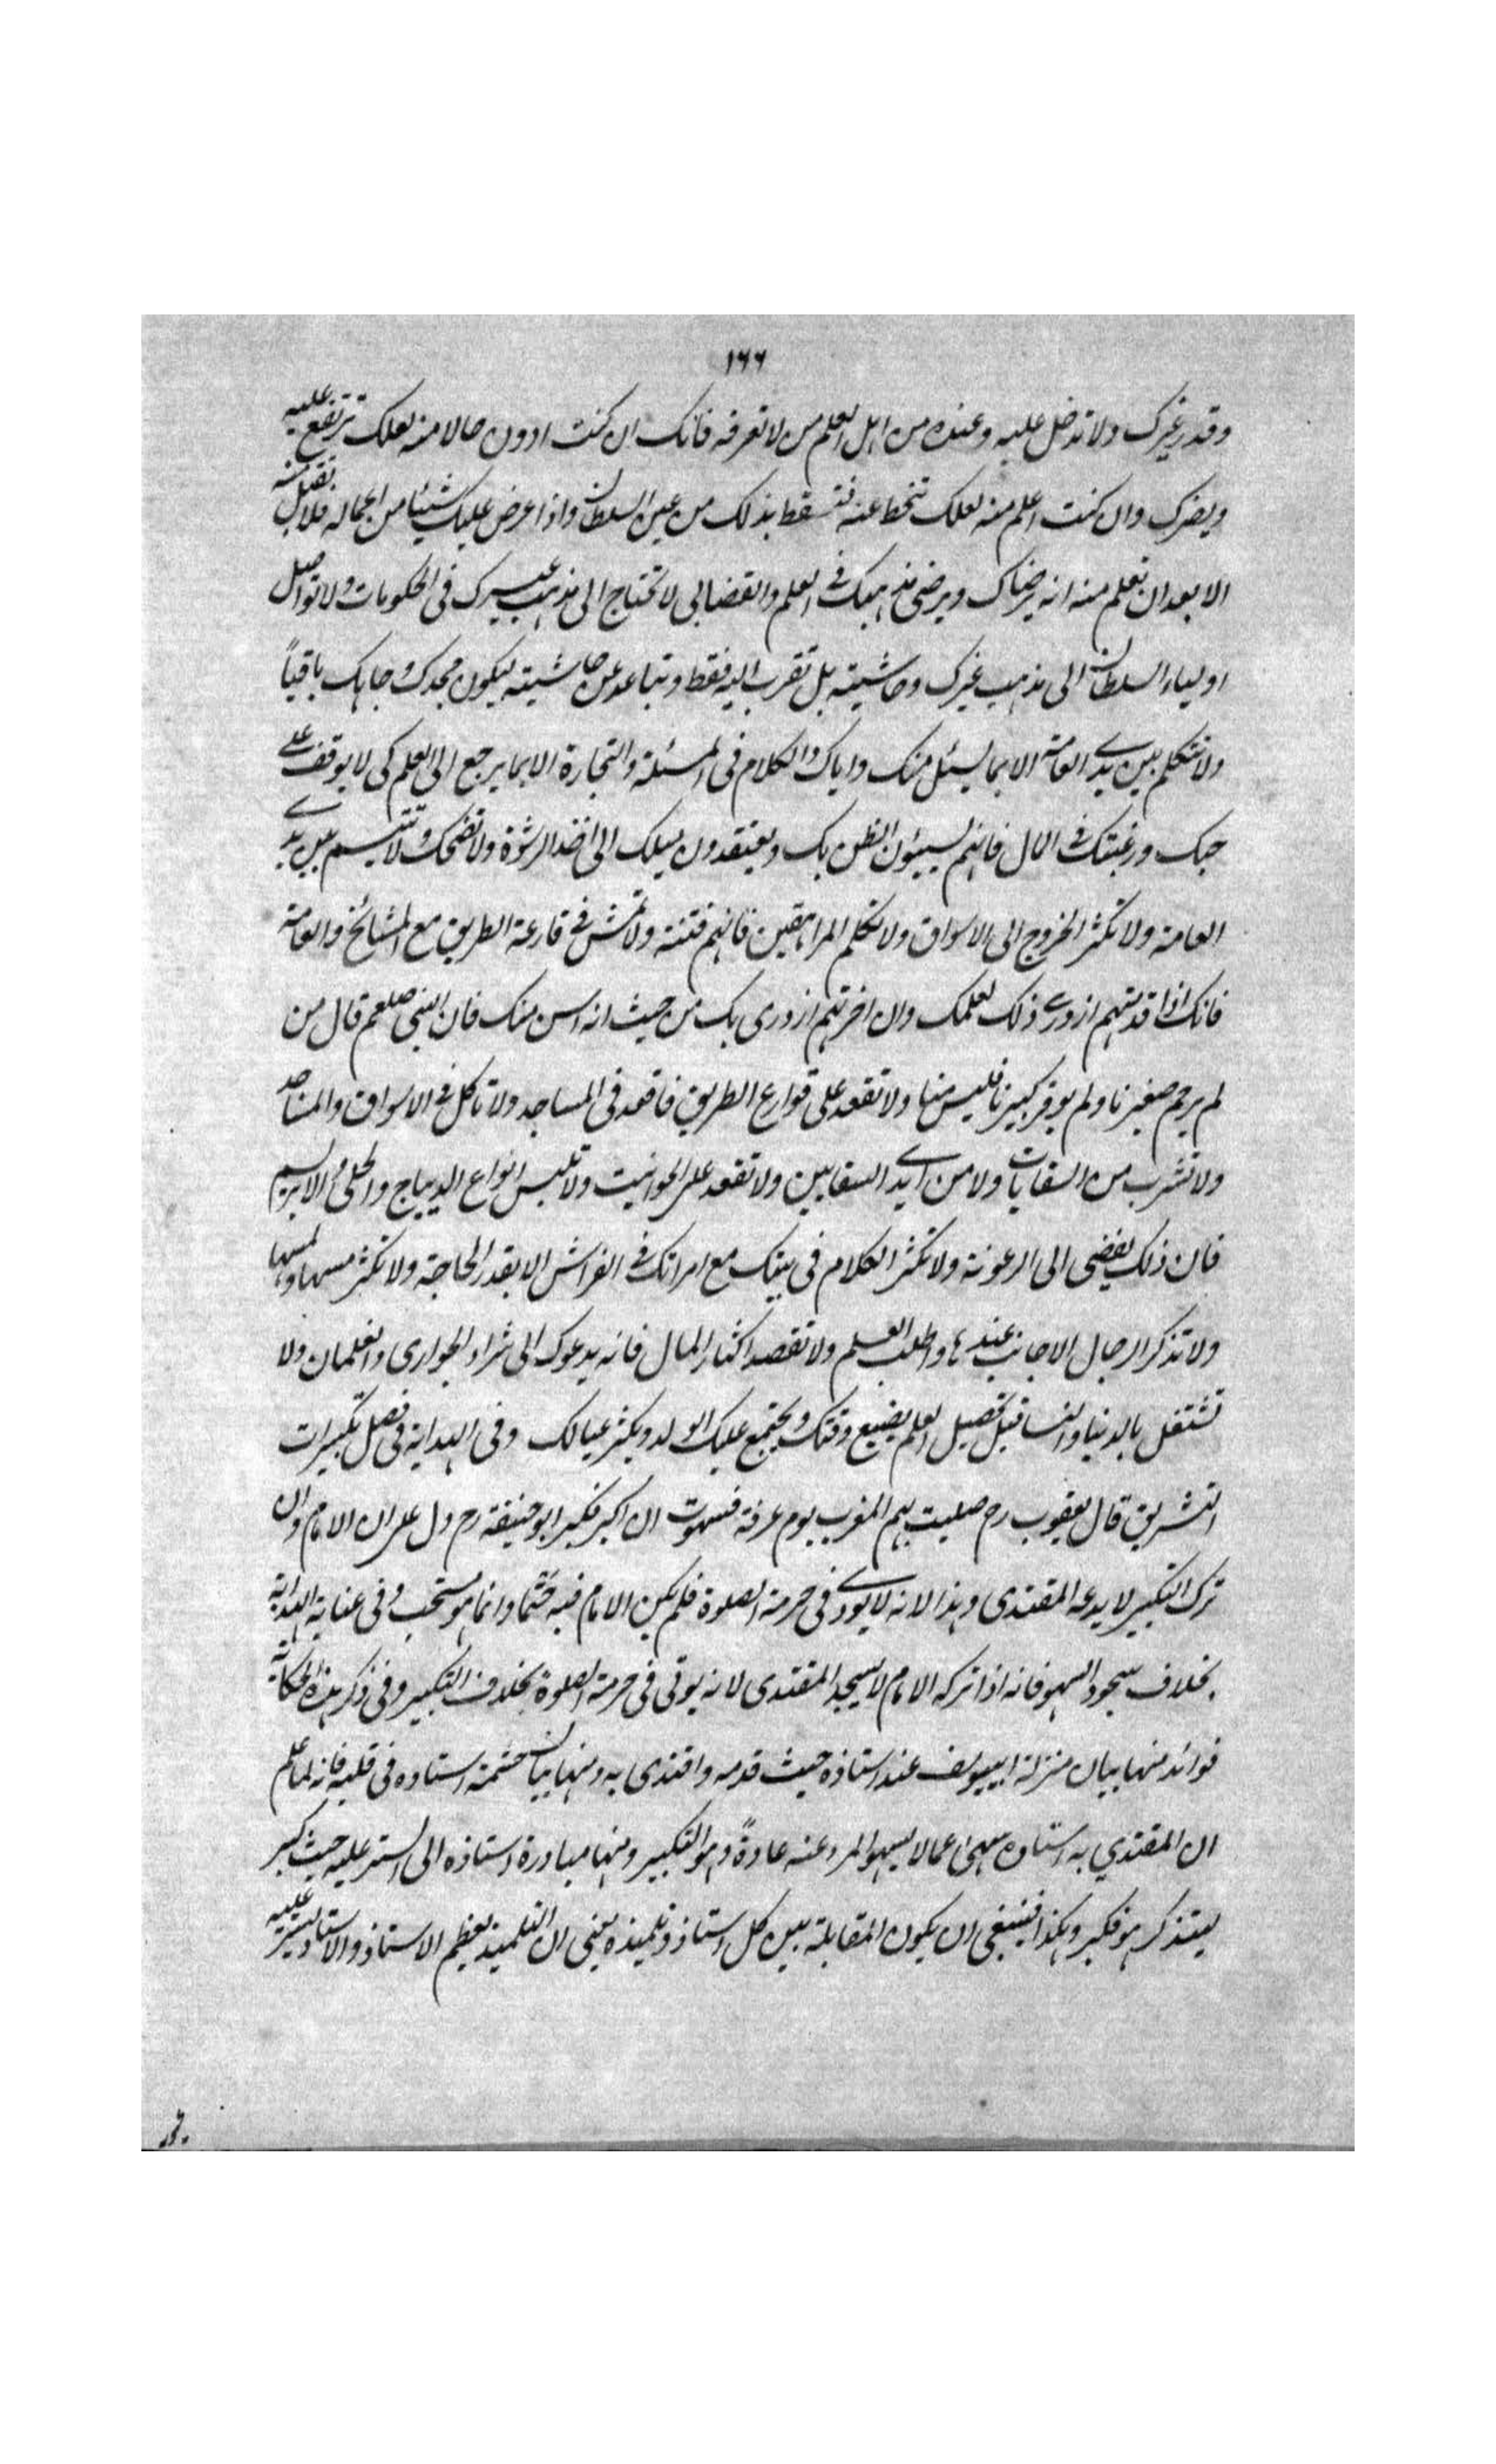 ١٦٦
وقدر غيرك ولا تدخل عليه وعنده من اهل العلم من لا تعرفه فانك ان كنت ادون حالا منه لعلك ترتفع عليه
ويضرك وان كنت اعلم منه لعلك تنحط عنه فتسقط بذلك من عين السلطان واذا عرض عليك شيئا من اعماله فلا تقبل منه
الا بعد ان تعلم منه انه يرضاك ويرضى مذهبك في العلم والقضا لا تحتاج الى مذهب غيرك في الحكومات ولا تواصل
اولياء السلطان الى مذهب غيرك وحاشيته بل تقرب اليه فقط وتباعد عن حاشيته ليكون مجدك وجاهك باقياً
ولا تتكلم بين يدي العامة الا بما يسئل منك واياك والكلام في المسئلة والتجارة الا بما يرجع الى العلم كى لا يوقف على
حبك ورغبتك في المال فانهم يسيئون الظن بك ويعتقدون ميلك الى اخذ الرشوة ولا تضحك ولا تتبسم بين يدي
العامة ولا تكثر الخروج الى الاسواق ولا تكلم المراهقين فانهم فتنة ولا تمش في قارعة الطريق مع المشائخ والعامة
فانك اذا قدمتهم ازدرى ذلك لعلمك وان اخرتهم ازدرى بك من حيث انه اسن منك فان النبى صلعم قال من
لم يرحم صغيرنا ولم يوقر كبيرنا فليس منا ولا تقعد على قوارع الطريق فاقعد في المساجد ولا تاكل في الاسواق والمساجد
ولا تشرب من السقايات ولا من ايدي السقايين ولا تقعد على الحوانيت ولا تلبس انواع الديباج والحلى والابريسم
فان ذلك يفضى الى الرعونة ولا تكثر الكلام في بيتك مع امراتك في الفراش الا بقدر الحاجة ولا تكثر مسها ولمسها
ولا تذكر الرجال الاجانب عندها واطلب العلم ولا تقصد اكثار المال فانه يدعوك الى شراء الجوارى والغلمان ولا
تشتغل بالدنيا والنسا قبل تحصيل العلم يضيع وقتك ويجتمع عليك الولد ويكثر عيالك وفى الهداية في فصل تكبيرات
التشريق قال يعقوب رح صليت بهم المغرب يوم عرفة فسهوت ان اكبر فكبر ابو حنيفة رح دل على ان الامام وان
ترك التكبير لا يدعه المقتدى وهذا لانه لا يودى في حرمة الصلوة فلم يكن الامام فيه حتما وانما هو مستحب وفى عناية الهداية
بخلاف سجود السهو فانه اذا تركه الامام لا يسجد المقتدى لانه يوتى في حرمة الصلوة بخلاف التكبير وفى ذكر هذه الحكاية
فوائد منها بيان منزلة ابييوسف عند استاذه حيث قدمه واقتدى به ومنها بيان حشمة استاده في قلبه فانه لما علم
ان المقتدي به استاده سهى عما لا يسهو المرء عنه عادةً وهو التكبير ومنها مبادرة استاذه الى الستر عليه حيث كبر
ليتذكر هو فكبر وهكذا فينبغى ان يكون المقابلة بين كل استاذ وتلميذه يعنى ان التلميذ يعظم الاستاذ والاستاد يستر عليه